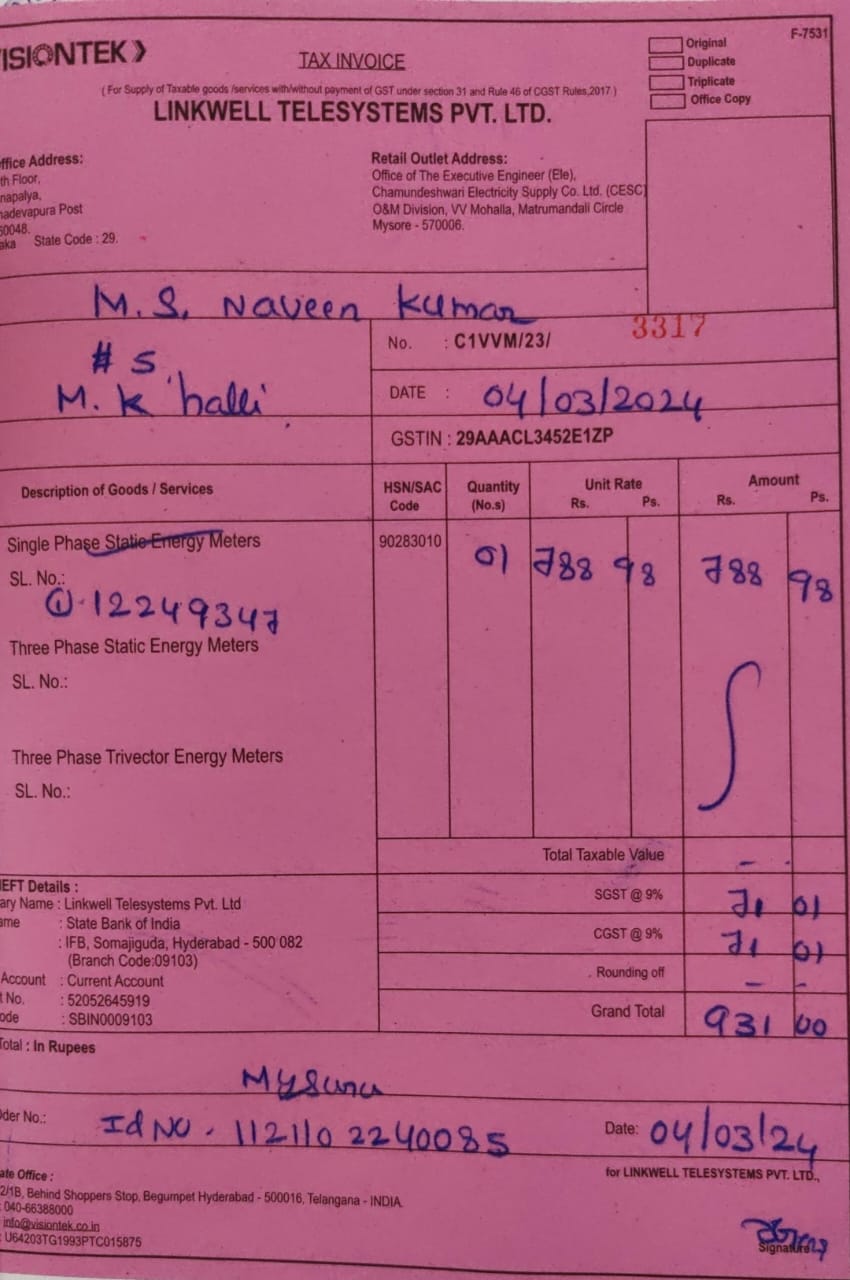 VISIONTEK
TAX INVOICE
F-7531
Original
Duplicate
Triplicate
Office Copy
( For Supply of Taxable goods /services with/without payment of GST under section 31 and Rule 46 of CGST Rules,2017 )
LINKWELL TELESYSTEMS PVT. LTD.
ffice Address:
th Floor,
napalya,
nadevapura Post
60048.
aka State Code : 29.
Retail Outlet Address:
Office of The Executive Engineer (Ele),
Chamundeshwari Electricity Supply Co. Ltd. (CESC)
O&M Division, VV Mohalla, Matrumandali Circle
Mysore - 570006.
M. S. Naveen Kumar
# 5
M. K halli
No. : C1VVM/23/ 3317
DATE : 04/03/2024
GSTIN : 29AAACL3452E1ZP
Description of Goods / Services HSN/SAC Code Quantity (No.s) Unit Rate Rs. Ps. Amount Rs. Ps.
Single Phase Static Energy Meters 90283010 01 788 98 788 98
SL. No.:
① 12249347
Three Phase Static Energy Meters
SL. No.:
Three Phase Trivector Energy Meters
SL. No.:
Total Taxable Value - -
SGST @ 9% 71 01
CGST @ 9% 71 01
Rounding off - -
Grand Total 931 00
EFT Details :
ary Name : Linkwell Telesystems Pvt. Ltd
ame : State Bank of India
: IFB, Somajiguda, Hyderabad - 500 082
(Branch Code:09103)
Account : Current Account
t No. : 52052645919
ode : SBIN0009103
Total : In Rupees
Mysuru
der No.: Id NO. 112110 2240085
Date: 04/03/24
for LINKWELL TELESYSTEMS PVT. LTD.,
ate Office :
2/1B, Behind Shoppers Stop, Begumpet Hyderabad - 500016, Telangana - INDIA.
: 040-66388000
info@visiontek.co.in
: U64203TG1993PTC015875
Signature